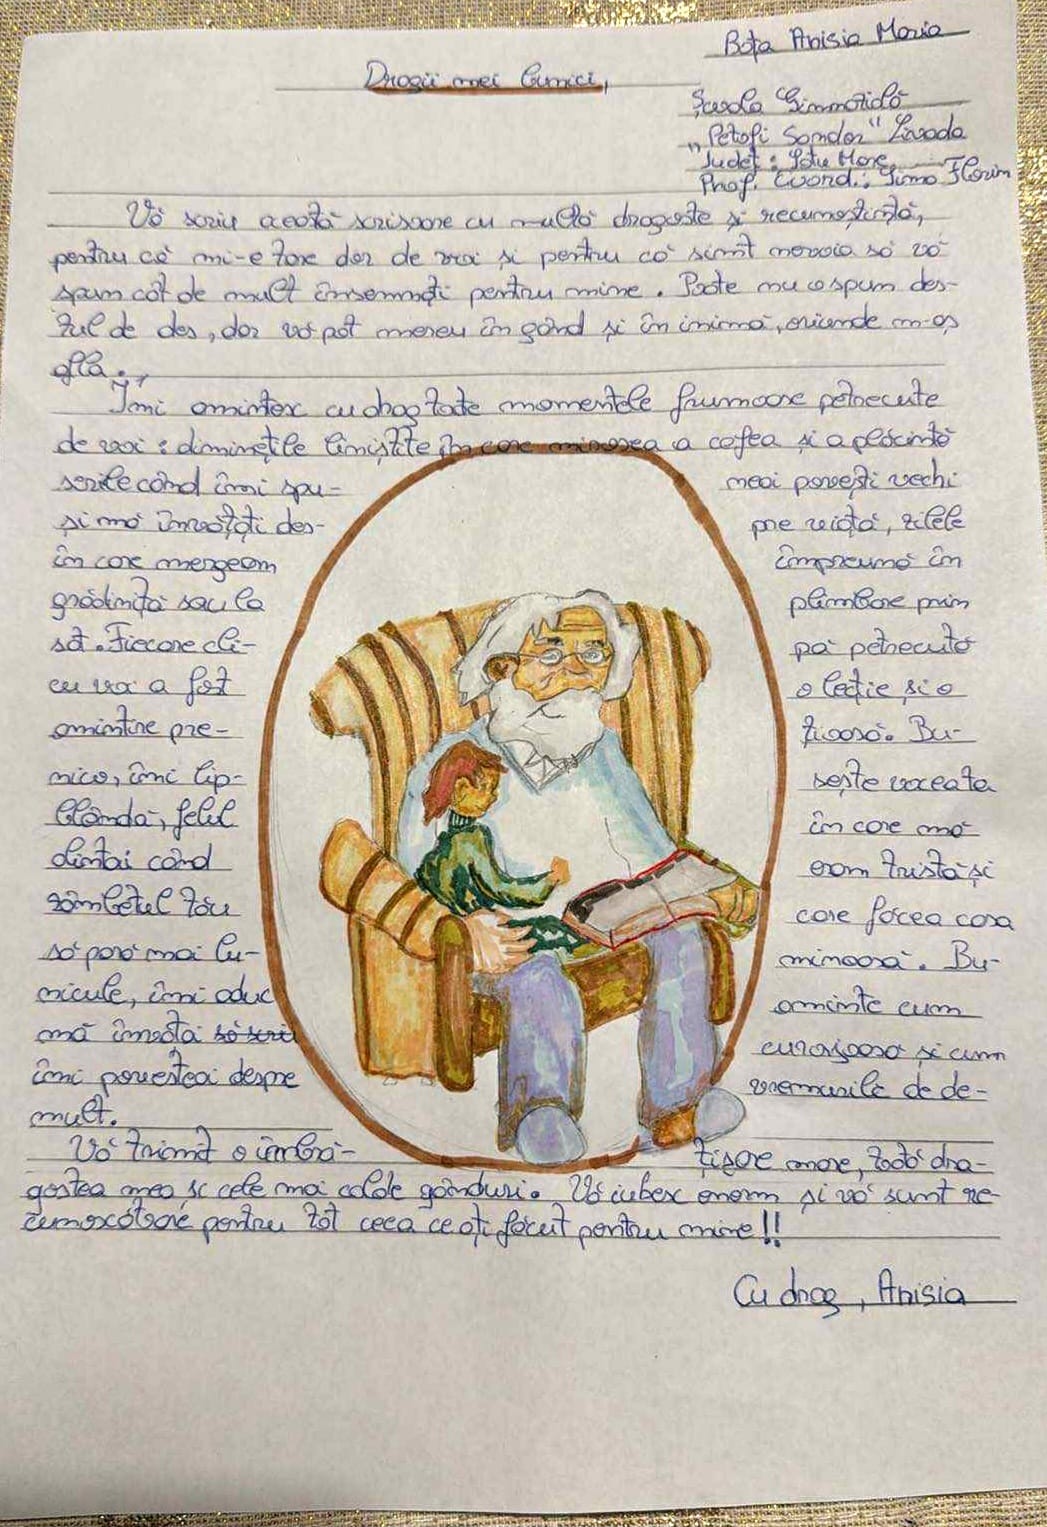 Boța Anisia Maria
Dragii mei bunici,
Școala Gimnazială
"Petofi Sandor" Livada
Județ: Satu Mare
Prof. Coord.: Sima Florin
Vă scriu aceată scrisoare cu multă dragoste și recunoștință,
pentru că mi-e tare dor de voi și pentru că simt nevoia să vă
spun cât de mult însemnați pentru mine. Poate nu o spun des-
tul de des, dar vă pot mereu în gând și în inimă, oriunde m-aș
afla.
Îmi amintex cu drag toate momentele frumoase petrecute
de voi: diminețile liniștite în care mirosea a cafea și a plăcintă
serile când îmi spu- neai povești vechi
și mă învățați des- pre viață, zilele
în care mergeam împreună în
grădiniță sau la plimbare prin
sat. Fiecare cli- pă petrecută
cu voi a fost o lecție și o
amintire pre- țioasă. Bu-
nico, îmi lip- sește vocea ta
blândă, felul în care mă
alintai când eram tristă și
zâmbetul tău care făcea casa
să pară mai lu- minoasă. Bu-
nicule, îmi aduc aminte cum
mă învăța să scrii curajoasă și cum
îmi povesteai despre vremurile de de-
mult.
Vă trimit o îmbră- țișare mare, toată dra-
gostea mea și cele mai calde gânduri. Vă iubex enorm și vă sunt re-
cunoscătoare pentru tot ceea ce ați făcut pentru mine!!
Cu drag, Anisia